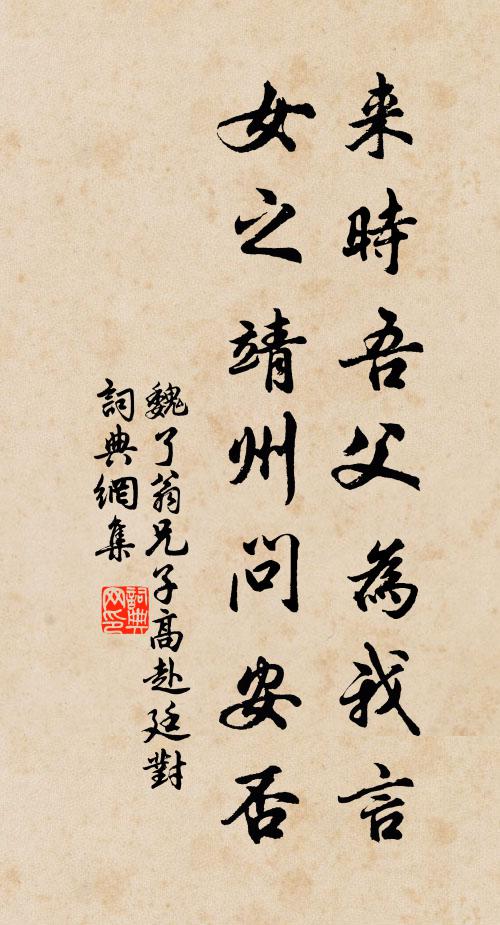 来時吾父為我言
女之靖州問安否
魏了翁兄子高赴廷對
詞典網集
詞典
网印